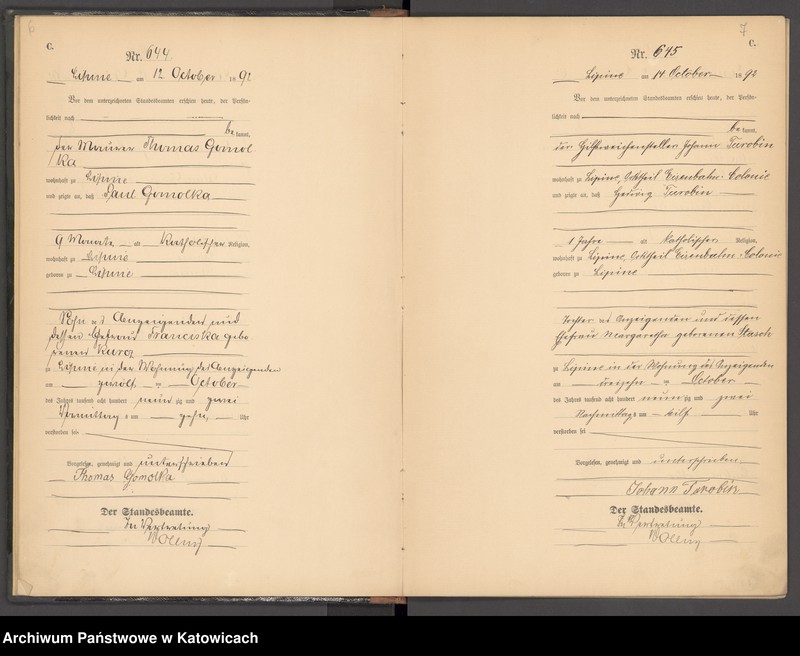 6
C.
Nr. 644
Lipine am 12 October 1892
Vor dem unterzeichneten Standesbeamten erschien heute, der Persön-
lichkeit nach
be kannt,
der Maurer Thomas Gomol
ka
wohnhaft zu Lipine
und zeigte an, daß Paul Gomolka
9 Monate alt Katholischer Religion,
wohnhaft zu Lipine
geboren zu Lipine
Sohn des Anzeigenden und
dessen Ehefrau Franciska gebo
renen
zu Lipine in der Wohnung des Anzeigenden
am zwölf ten October
des Jahres tausend acht hundert neun zig und zwei
Vormittags um zehn Uhr
verstorben sei
Vorgelesen, genehmigt und unterschrieben
Thomas Gomolka
Der Standesbeamte.
In Vertretung
7
C.
Nr. 645
Lipine am 14 October 1892
Vor dem unterzeichneten Standesbeamten erschien heute, der Persön-
lichkeit nach
be kannt,
der Hilfsweichensteller Johann Turobin
wohnhaft zu Lipine, Ortstheil Eisenbahn-Colonie
und zeigte an, daß Hedwig Turobin
1 Jahre alt Katholischer Religion,
wohnhaft zu Lipine, Ortstheil Eisenbahn-Colonie
geboren zu Lipine
Tochter des Anzeigenden und dessen
Ehefrau Margarethe geborenen Stasch
zu Lipine in der Wohnung des Anzeigenden
am dreizehn ten October
des Jahres tausend acht hundert neun zig und zwei
Nachmittags um elf Uhr
verstorben sei
Vorgelesen, genehmigt und unterschrieben
Johann Turobin
Der Standesbeamte.
In Vertretung
Archiwum Państwowe w Katowicach